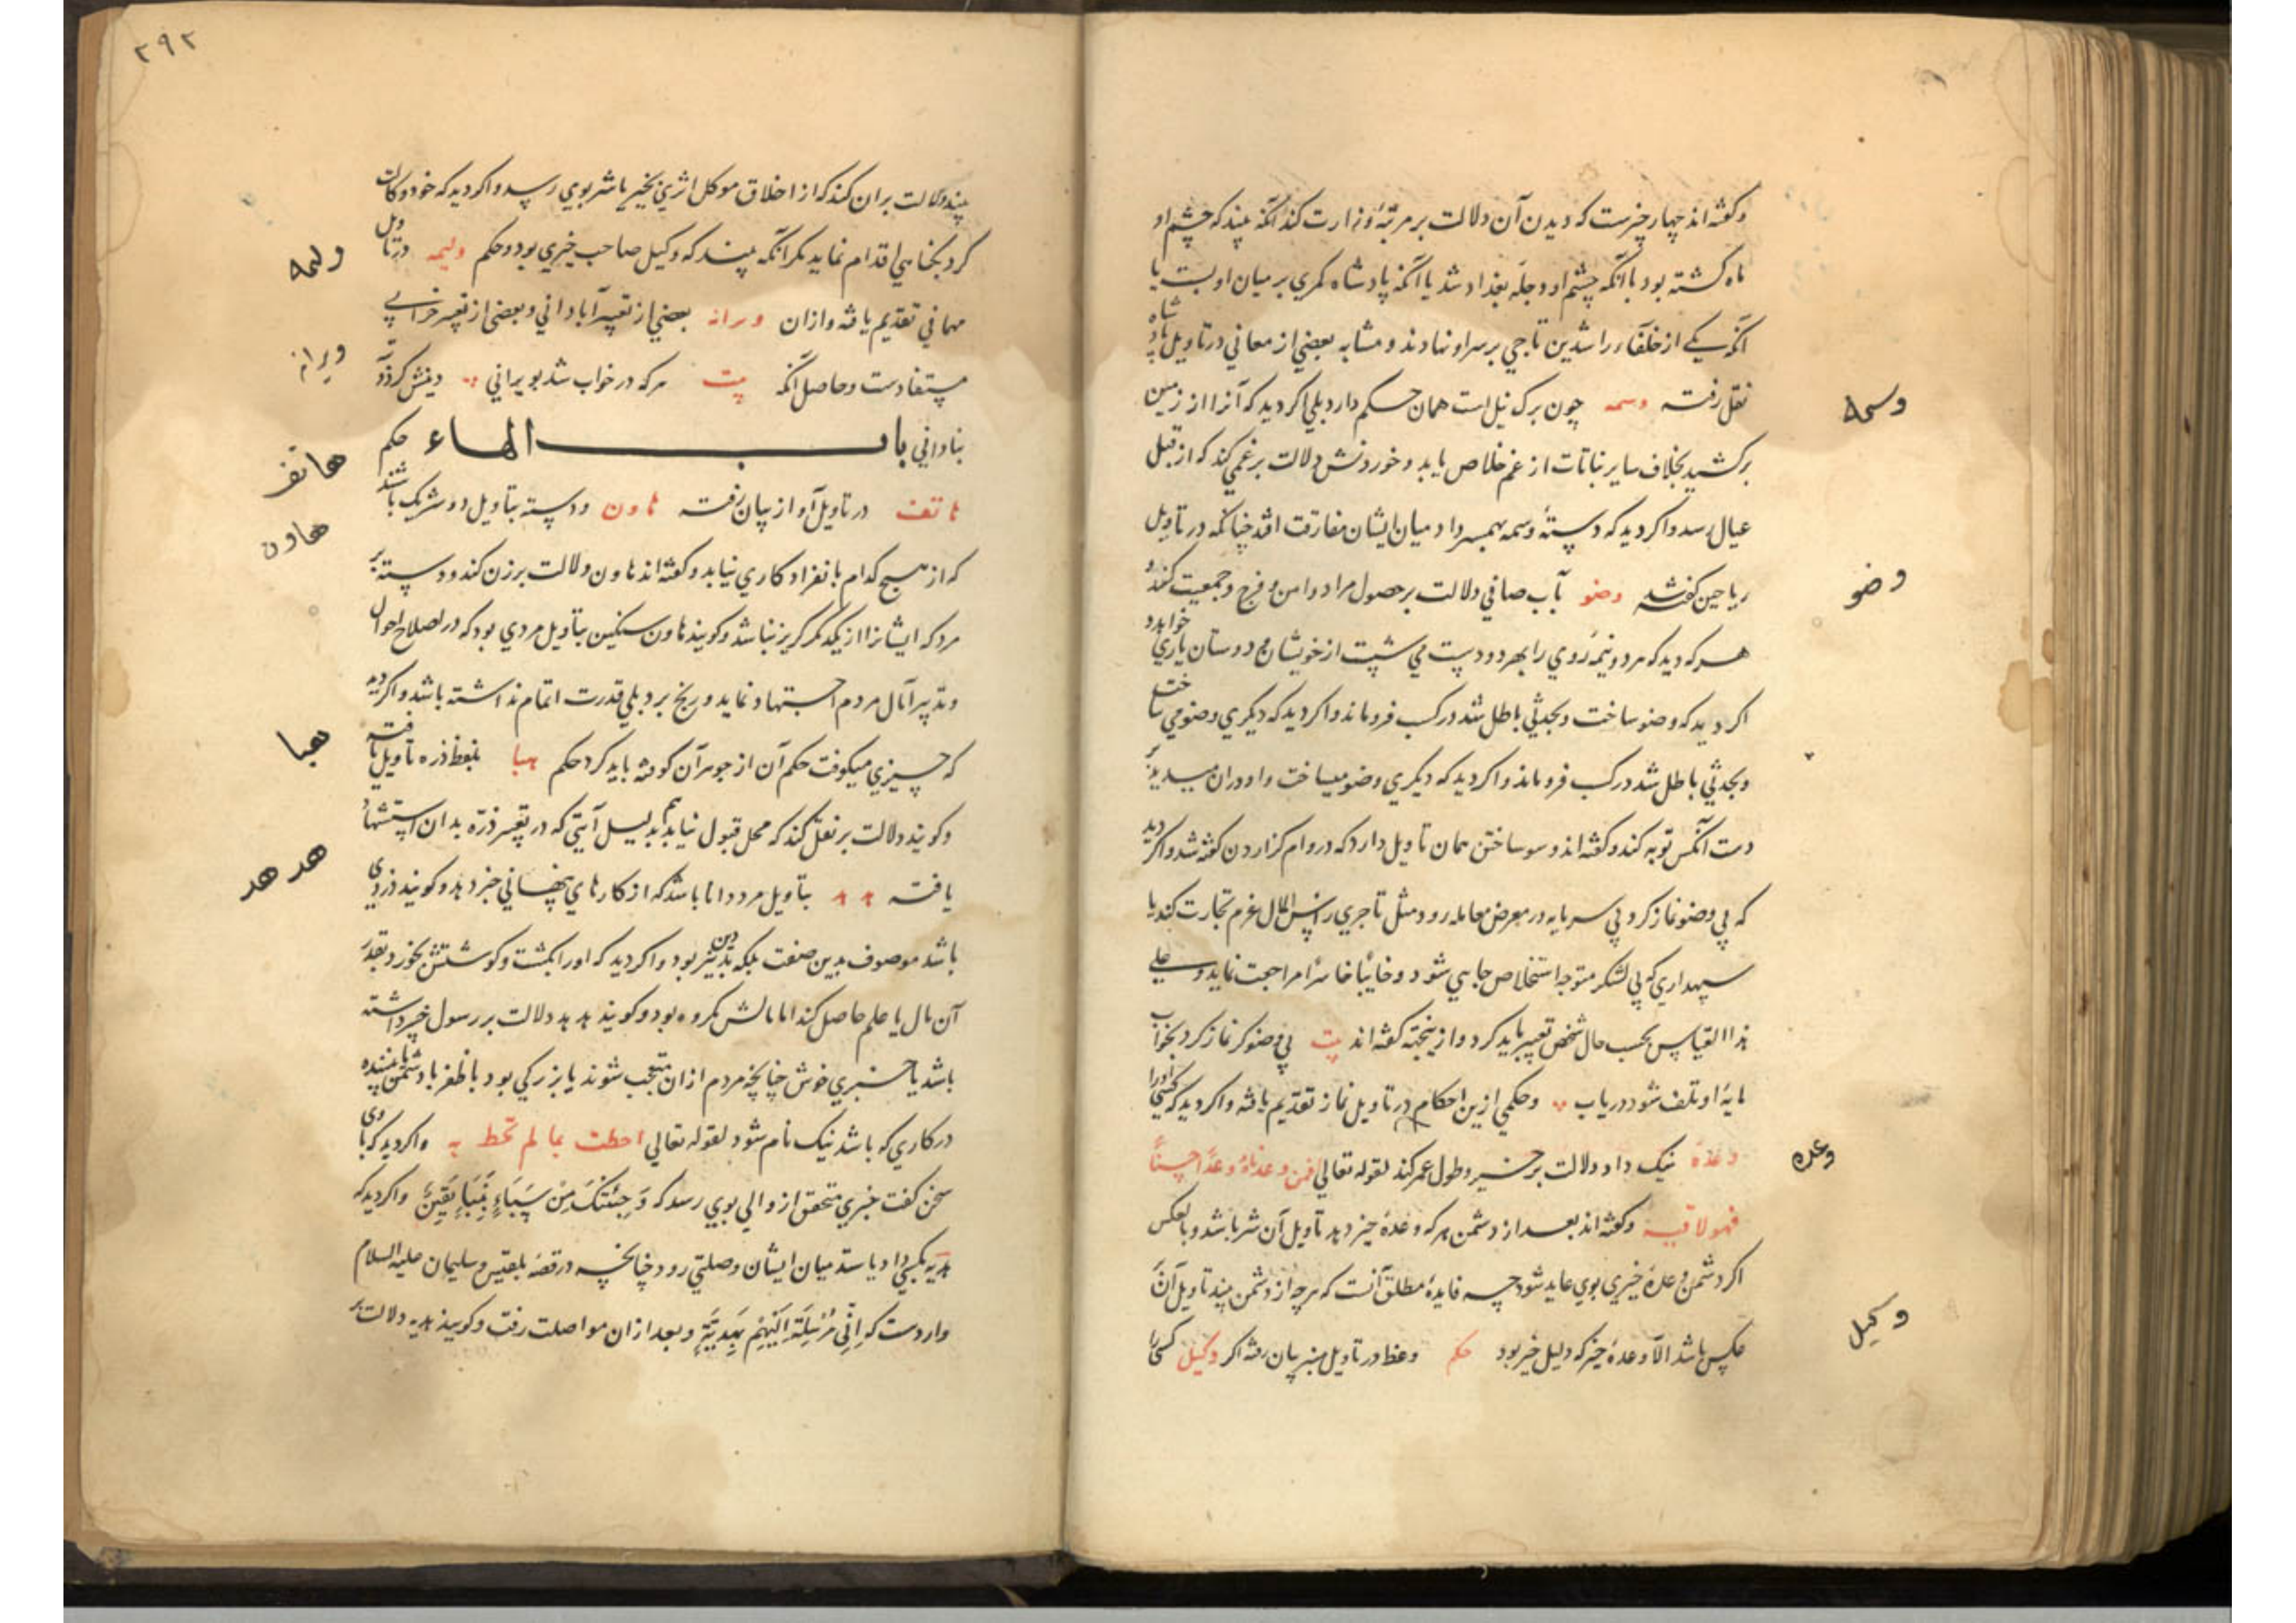 وکفته‌اند چهار چیزست که دیدن آن دلالت بر مرتبهٔ وزارت کند آنکه بیند که چشم او
ماه کشته بود یا آنکه چشم او دجلهٔ بغداد شد یا آنکه پادشاه کمری بر میان او بست یا
آنکه یکی از خلفاء راشدین تاجی بر سر او نهادند و مشابه بعضی از معانی در تاویل پادشاه
نقل رفته وسمه چون برک نیل است همان حکم دارد بلی اکر دید که آنرا از زمین
وسمه
برکشید بخلاف سایر نباتات از غم خلاص یابد و خوردنش دلالت بر غمی کند که از قبل
عیال رسد و اکر دید که دستهٔ وسمه بهمسر داد میان ایشان مفارقت افتد چنانکه در تاویل
ریاحین کفته شد وضو بآب صافی دلالت بر حصول مراد و امن و فرج و جمعیت کند و
وضو
هرکه دید که مرد و نیمه روی را بهر دو دست می شست از خویشان و دوستان یاری خواهد
اکر دید که وضو ساخت و بحدثی باطل شد در کسب فروماند و اکر دید که دیکری وضو می ساخت
و بحدثی باطل شد در کسب فروماند و اکر دید که دیکری وضو میساخت و او در آن میدید بر
دست آنکس توبه کند و کفته‌اند وسو ساختن همان تاویل دارد که در وام کزاردن کفته شد و اکر دید
که بی وضو نماز کرد بی سرمایه در معرض معامله رود مثل تاجری راس المال عزم تجارت کند یا
سپهداری که بی لشکر متوجه استخلاص جایی شود و خایبا خاسرا مراجعت نماید و علی
هذا القیاس بحسب حال شخص تعبیر باید کرد و از ینجهته کفته‌اند بیت بی وضو کر نماز کرد بخواب
مایهٔ او تلف شود دریاب و حکمی ازین احکام در تاویل نماز تقدیم یافته و اکر دید که کسی او را
وعدهٔ نیک داد دلالت بر خیر و طول عمر کند لقوله تعالی افمن وعدناه وعدا حسنا
وعده
فهو لاقیه وکفته‌اند بعد از دشمن هرکه وعدهٔ خیر دهد تاویل آن شر باشد و بالعکس
اکر دشمن وعدهٔ خیری بوی عاید شود چه فایدهٔ مطلق آنست که هرچه از دشمن بیند تاویل آن
عکس باشد الا وعدهٔ خیر که دلیل خیر بود حکم وعظ در تاویل منبر بیان رفته اکر وکیل کسی را
وکیل
۲۹۲
بیند دلالت بر آن کند که از اخلاق موکل اثری بخیر یا شر بوی رسد و اکر دید که خود وکالت
کرد بکناهی اقدام نماید مکر آنکه بیند که وکیل صاحب خیری بود و حکم ولیمه در تاویل
ولیمه
مهمانی تقدیم یافته و ازان ویرانه بعضی از تعبیر آبادانی و بعضی از تعبیر خرابی
ویرانه
مستفادست و حاصل آنکه بیت هرکه در خواب شد بویرانی
بنادانی باب الهاء حکم
هاتف در تاویل آواز بیان رفته هاون و دسته بتاویل دو شریک باشند
هاتف
هاون
که از هیچ کدام بانفراد کاری نیاید وکفته‌اند هاون دلالت بر زن کند و دسته بر
مرد که ایشانرا از یکدکر کریز نباشد وکویند هاون سنکین بتاویل مردی بود که در اصلاح احوال
و تدبیر آمال مردم اجتهاد نماید و رنج برد بلی قدرت اتمام نداشته باشد و اکر دید
که چیزی میکوفت حکم آن از جوهر آن کوفته باید کرد حکم هبا بلفظ ذره تاویل یافته
هبا
وکویند دلالت بر نفل کند که محل قبول نیابد هم بدلیل آیتی که در تعبیر ذره بدان استشهاد
یافته هدهد بتاویل مرد دانا باشد که از کارهای پنهانی خبر دهد وکویند دزدی
هدهد
باشد موصوف بدین صفت بلکه بددین نیز بود و اکر دید که او را بکشت و کوشتش بخورد بقدر
آن مال یا علم حاصل کند اما مالش مکروه بود وکویند هدهد دلالت بر رسول خبر داشته
باشد یا خبری خوش چنانچه مردم از ان متعجب شوند یا بزرکی بود با ظفر با دشمن بیننده
در کاری که باشد نیک نام شود لقوله تعالی احطت بما لم تحط به و اکر دید که با وی
سخن کفت خبری متحقق از والی بوی رسد که وَجِئْتُكَ مِنْ سَبَاءٍ بِنَبَاءٍ یَقِینٍ و اکر دید که
هدیه بکسی داد یا ستد میان ایشان وصلتی رود چنانچه در قصهٔ بلقیس و سلیمان علیه السلام
واردست که اِنِّی مُرْسِلَةٌ اِلَیْهِمْ بِهَدِیَّةٍ و بعد ازان مواصلت رفت وکویند هدیه دلالت بر